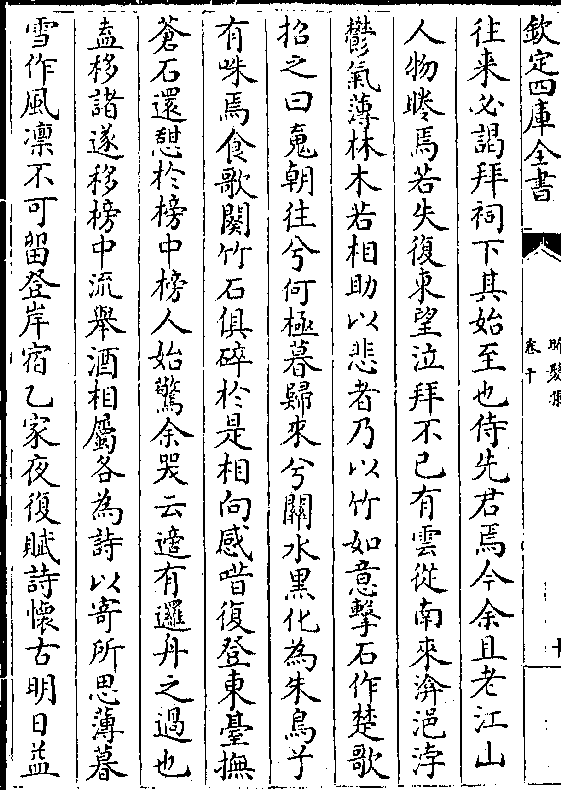 欽定四庫全書
卷十
往来必謁拜祠下其始至也侍先君焉今余且老江山
人物睠焉若失復東望泣拜不已有雲從南來渰浥浡
鬱氣薄林木若相助以悲者乃以竹如意擊石作楚歌
招之曰䰟朝往兮何極暮歸來兮關水黑化為朱鳥兮
有咮焉食歌闋竹石俱碎於是相向感唶復登東臺撫
蒼石還憇於榜中榜人始驚余哭云適有邏舟之過也
盍移諸遂移榜中流舉酒相屬各為詩以寄所思薄暮
雪作風凛不可留登岸宿乙家夜復賦詩懷古明日益